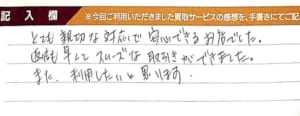 記入欄 ※今回ご利用いただきました買取サービスの感想を、手書きにてご記
とても親切な対応で安心できるお店でした。
返信も早くてスムーズな取引きができました。
また、利用したいと思います。